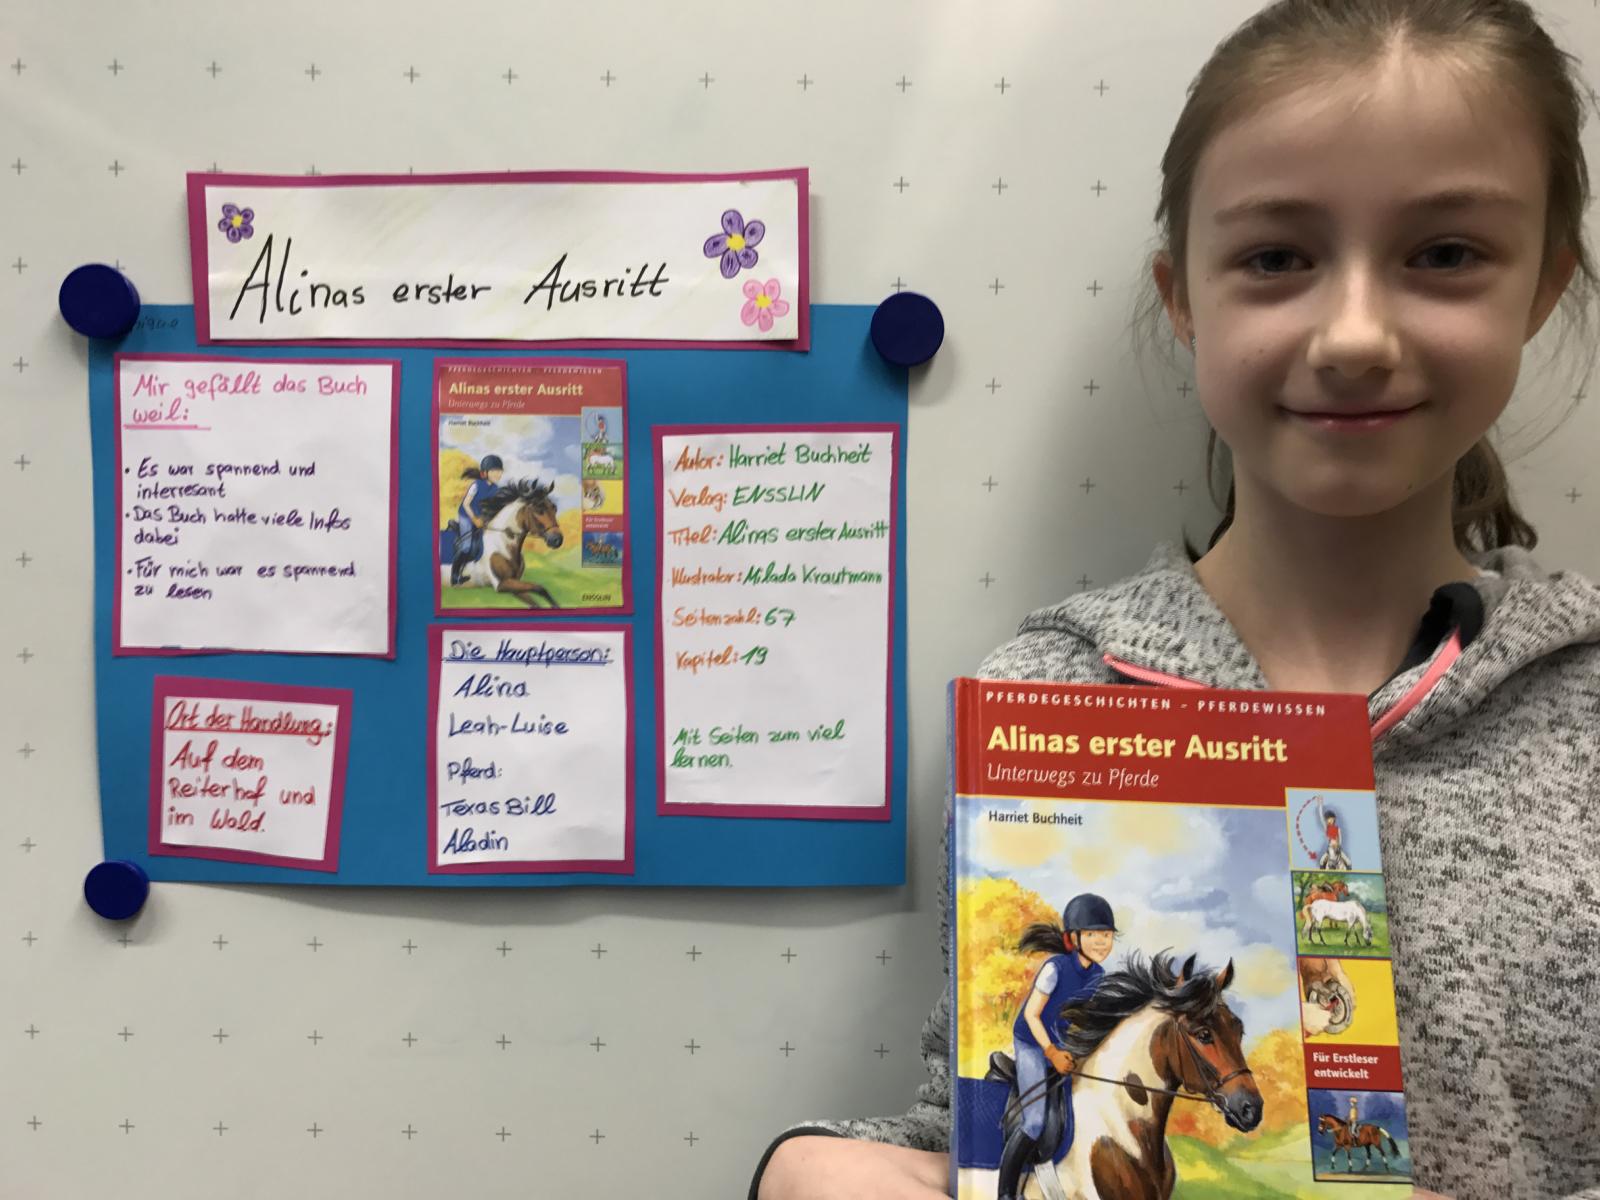 Alinas erster Ausritt
Mir gefällt das Buch
weil:
• Es war spannend und
interresant
• Das Buch hatte viele Infos
dabei
• Für mich war es spannend
zu lesen
Ort der Handlung:
Auf dem
Reiterhof und
im Wald.
PFERDEGESCHICHTEN - PFERDEWISSEN
Alinas erster Ausritt
Unterwegs zu Pferde
Harriet Buchheit
Für Erstleser
entwickelt
ENSSLIN
Die Hauptperson:
Alina
Leah-Luise
Pferd:
Texas Bill
Aladin
Autor: Harriet Buchheit
Verlag: ENSSLIN
Titel: Alinas erster Ausritt
Illustrator: Milada Krautmann
Seitenzahl: 67
Kapitel: 19
Mit Seiten zum viel
lernen.
PFERDEGESCHICHTEN - PFERDEWISSEN
Alinas erster Ausritt
Unterwegs zu Pferde
Harriet Buchheit
Für Erstleser
entwickelt